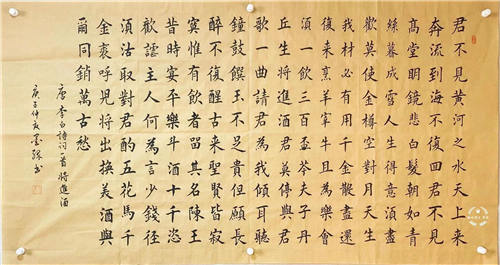 君不見黃河之水天上來
奔流到海不復回君不見
高堂明鏡悲白髮朝如青
絲暮成雪人生得意須盡
歡莫使金樽空對月天生
我材必有用千金散盡還
復來烹羊宰牛且為樂會
須一飲三百盃岑夫子丹
丘生將進酒君莫停與君
歌一曲請君為我傾耳聽
鐘鼓饌玉不足貴但願長
醉不復醒古來聖賢皆寂
寞惟有飲者留其名陳王
昔時宴平樂斗酒十千恣
歡謔主人何為言少錢徑
須沽取對君酌五花馬千
金裘呼兒將出換美酒與
爾同銷萬古愁
唐李白詩詞一首將進酒
庚子仲夏書